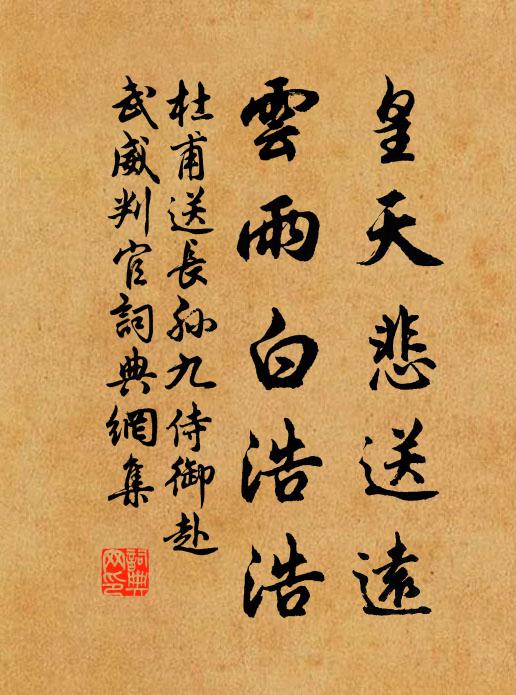 皇天悲送遠
雲雨白浩浩
杜甫送長孫九侍御赴
武威判官詞典網集
詞典
网印